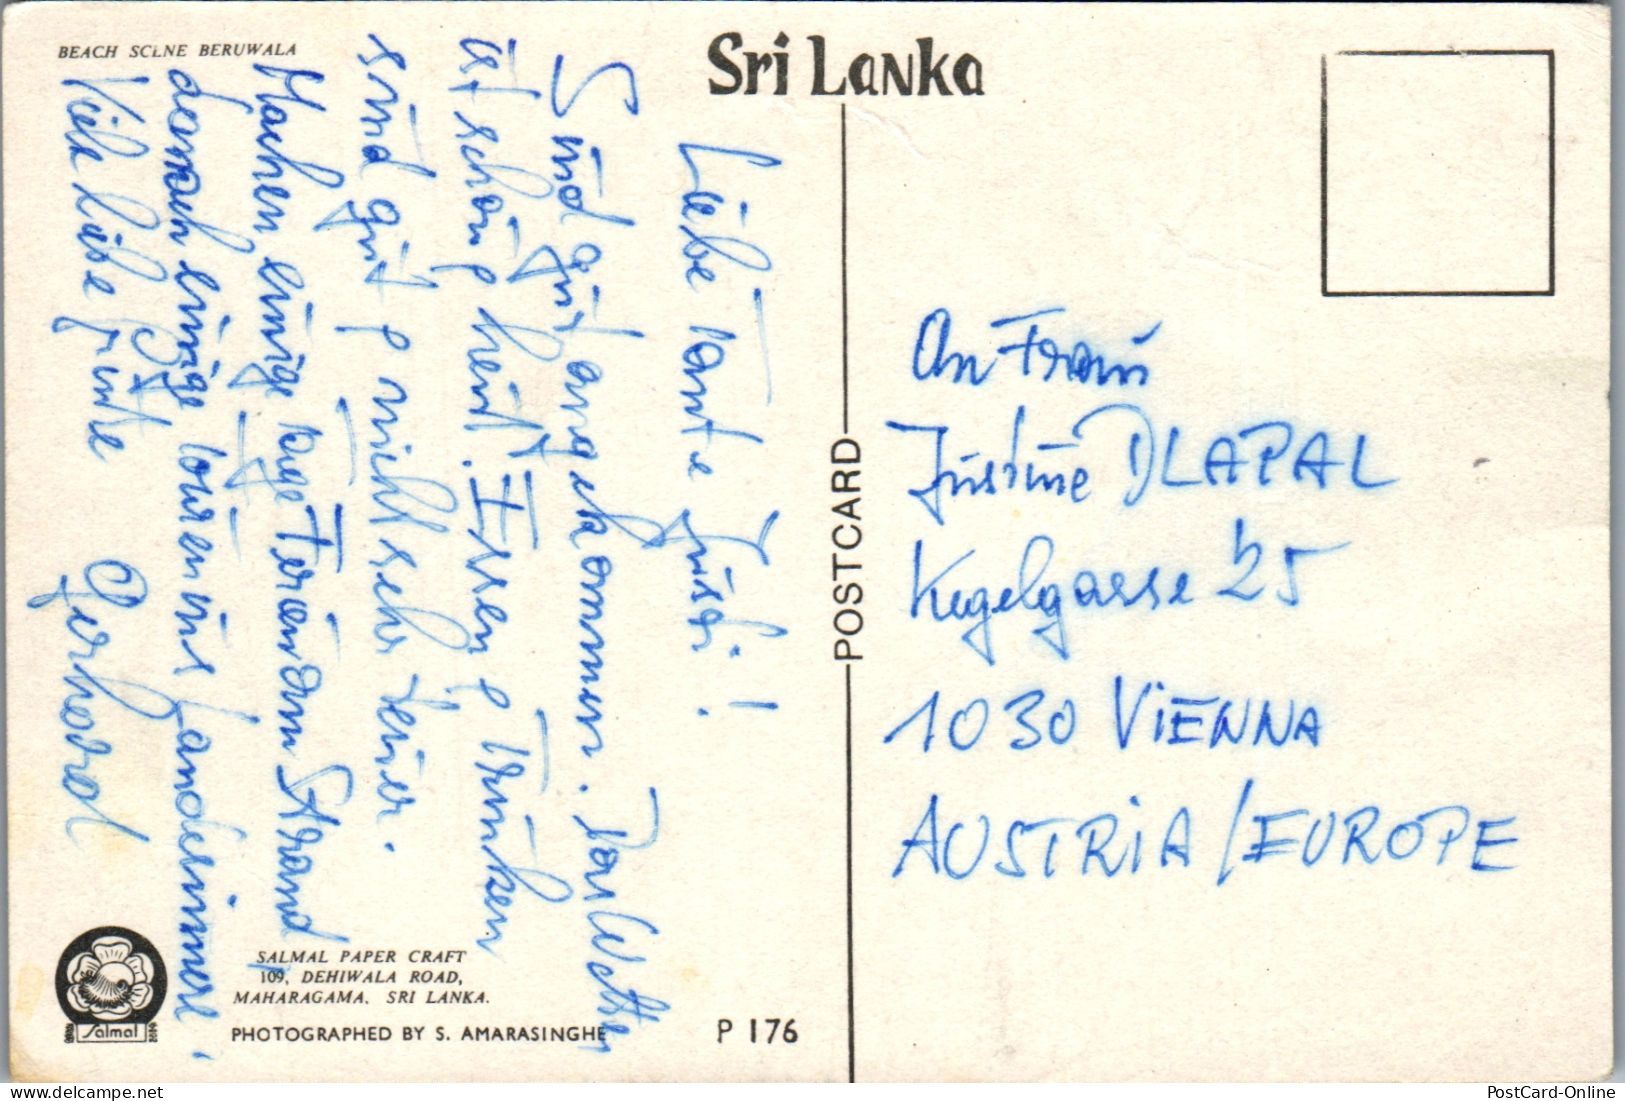 BEACH SCENE BERUWALA
Sri Lanka
Liebe Tante Justi!
Sind gut angekommen. Das Wetter
ist schön, heiß. Essen, Trinken
sind gut, nicht sehr teuer.
Machen einige Tage am Strand
danach einige Touren ins Landesinnere.
Viele liebe Grüße Gerhard
POSTCARD
An Frau
Justine DLAPAL
Kegelgasse 25
1030 ViENNA
AUSTRiA / EUROPE
SALMAL PAPER CRAFT
109, DEHIWALA ROAD,
MAHARAGAMA, SRI LANKA.
Salmal
PHOTOGRAPHED BY S. AMARASINGHE
P 176
PostCard-Online